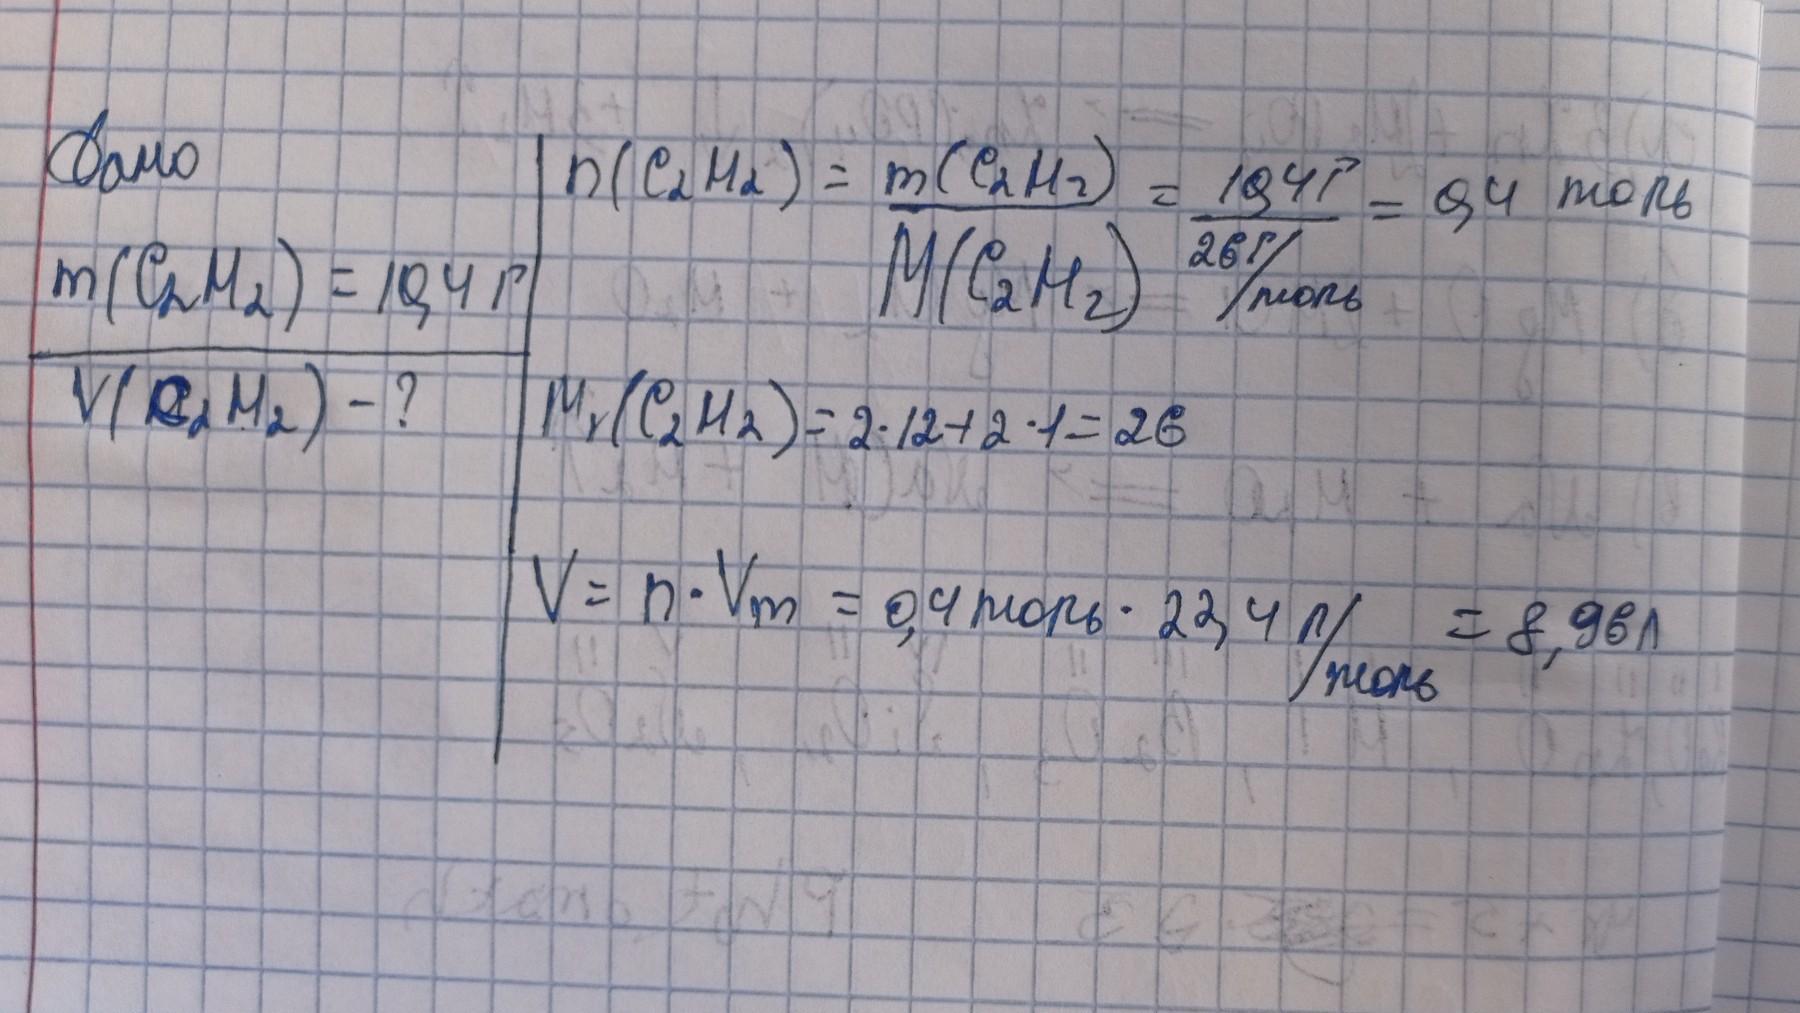 Дано
m(C₂H₂) = 10,4 г
V(C₂H₂) - ?
n(C₂H₂) = m(C₂H₂) / M(C₂H₂) = 10,4 г / 26 г/моль = 0,4 моль
Mr(C₂H₂) = 2·12+2·1=26
V = n·Vm = 0,4 моль · 22,4 л/моль = 8,96 л